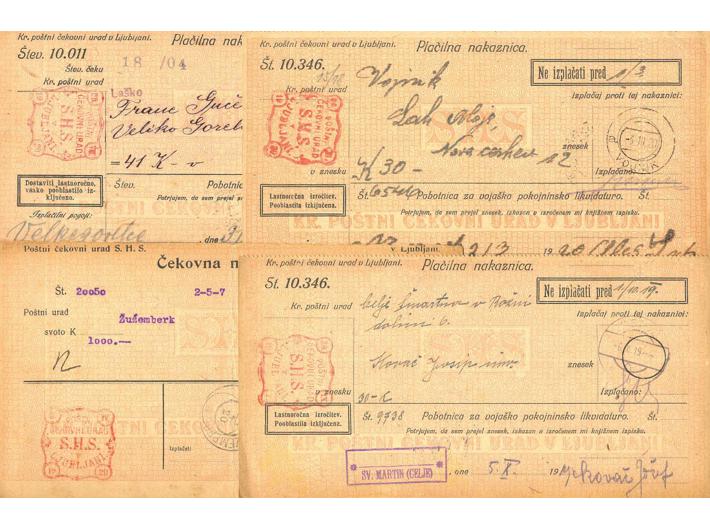 Kr. poštni čekovni urad v Ljubljani.
Plačilna nak
Štev. 10.011
18 /04
Štev. čeku
Kr. poštni urad
Laško
Franc
Veliko
= 41 K - v
POŠTNI
ČEKOVNI URAD
S.H.S.
LJUBLJANI
Dostaviti lastnoročno,
vsako pooblastilo iz-
ključeno.
Štev.
Pobotn
Potrjujem, da sem prejel s
Izplačilni pogoji:
dne
Kr. poštni čekovni urad v Ljubljani.
Plačilna nakaznica.
Št. 10.346.
Kr. poštni urad
Vojnik
Ne izplačati pred 1/3
Izplačaj proti tej nakaznici:
Lah Alojz
Nova cerkev 12
POŠTNI
ČEKOVNI URAD
S.H.S.
LJUBLJANI
v znesku
K 30 -
znesek
Izplačano:
Lastnoročna izročitev.
Pooblastila izključena.
Št.
Pobotnica za vojaško pokojninsko likvidaturo.
Št.
Potrjujem, da sem prejel znesek, izkazan o izročenem mi knjižnem izpisku.
KR. POŠTNI ČEKOVNI URAD V LJUBLJANI
Ljubljani.
2/3
1920
Poštni čekovni urad S. H. S.
Čekovna n
Št. 20050
2-5-7
Poštni urad
Žužemberk
svoto K
1000.--
TNI ČEKO
ČEKOVNI URAD
S.H.S.
LJUBLJANI
19 20
Izplačati:
Kr. poštni čekovni urad v Ljubljani.
Plačilna nakaznica.
Št. 10.346.
Kr. poštni urad
Celje Šmartno v Rožni
dolini 6.
Ne izplačati pred 1/10.19.
Izplačaj proti tej nakaznici:
SHS
Kovač Josip
POŠTNI
ČEKOVNI URAD
S.H.S.
LJUBLJANI
v znesku
30-K
znesek
Izplačano:
Lastnoročna izročitev.
Pooblastila izključena.
Št. 9738
Pobotnica za vojaško pokojninsko likvidaturo.
Št.
Potrjujem, da sem prejel znesek, izkazan o izročenem mi knjižnem izpisku.
KR. POŠTNI ČEKOVNI URAD V LJUBLJANI
SV. MARTIN (CELJE)
, dne
5. X.
19
Kovač Jožef